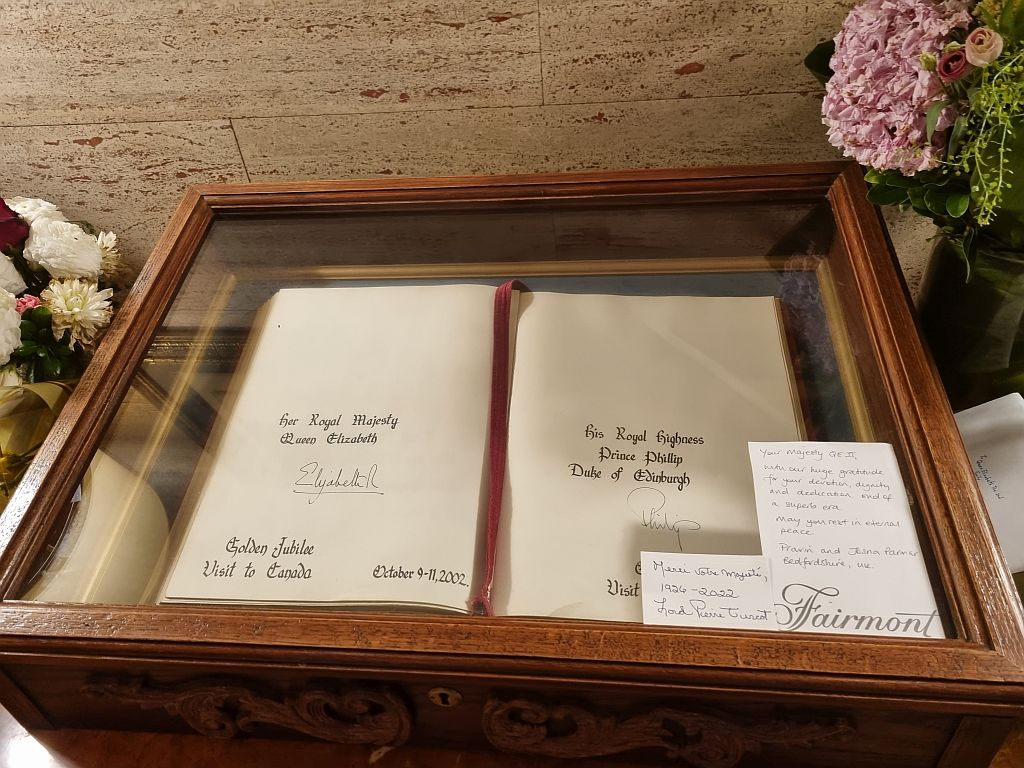 Her Royal Majesty
Queen Elizabeth
Elizabeth R
Golden Jubilee
Visit to Canada
October 9-11, 2002
His Royal Highness
Prince Phillip
Duke of Edinburgh
Philip
G
Visit
Your Majesty QE II,
with our huge gratitude
for your devotion, dignity
and dedication. End of
a superb era
May you rest in eternal
peace
Pravin and Jasna Parmar
Bedfordshire, UK.
Fairmont
Merci votre Majesté,
1926-2022
Lord Pierre Turcot